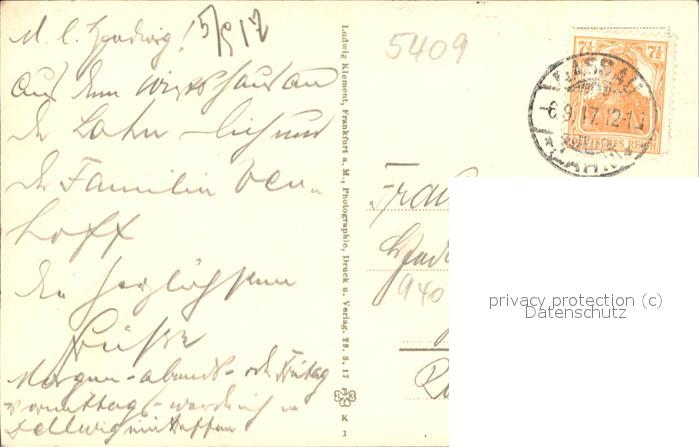 M. l. Hedwig! 5/9 17
Aus dem Wirtshaus an
der Lahn
der Familie
hoff
die herzlichsten
Grüße
Morgen - abend - oder Freitag
vormittag - werde ich in
eintreffen
Ludwig Klement, Frankfurt a. M., Photographie, Druck u. Verlag. 29. 8. 17
K
1
5409
7½ 7½
DEUTSCHES REICH
NASSAU
6.9.17.12-1
(LAHN)
Frau
940
privacy protection (c)
Datenschutz